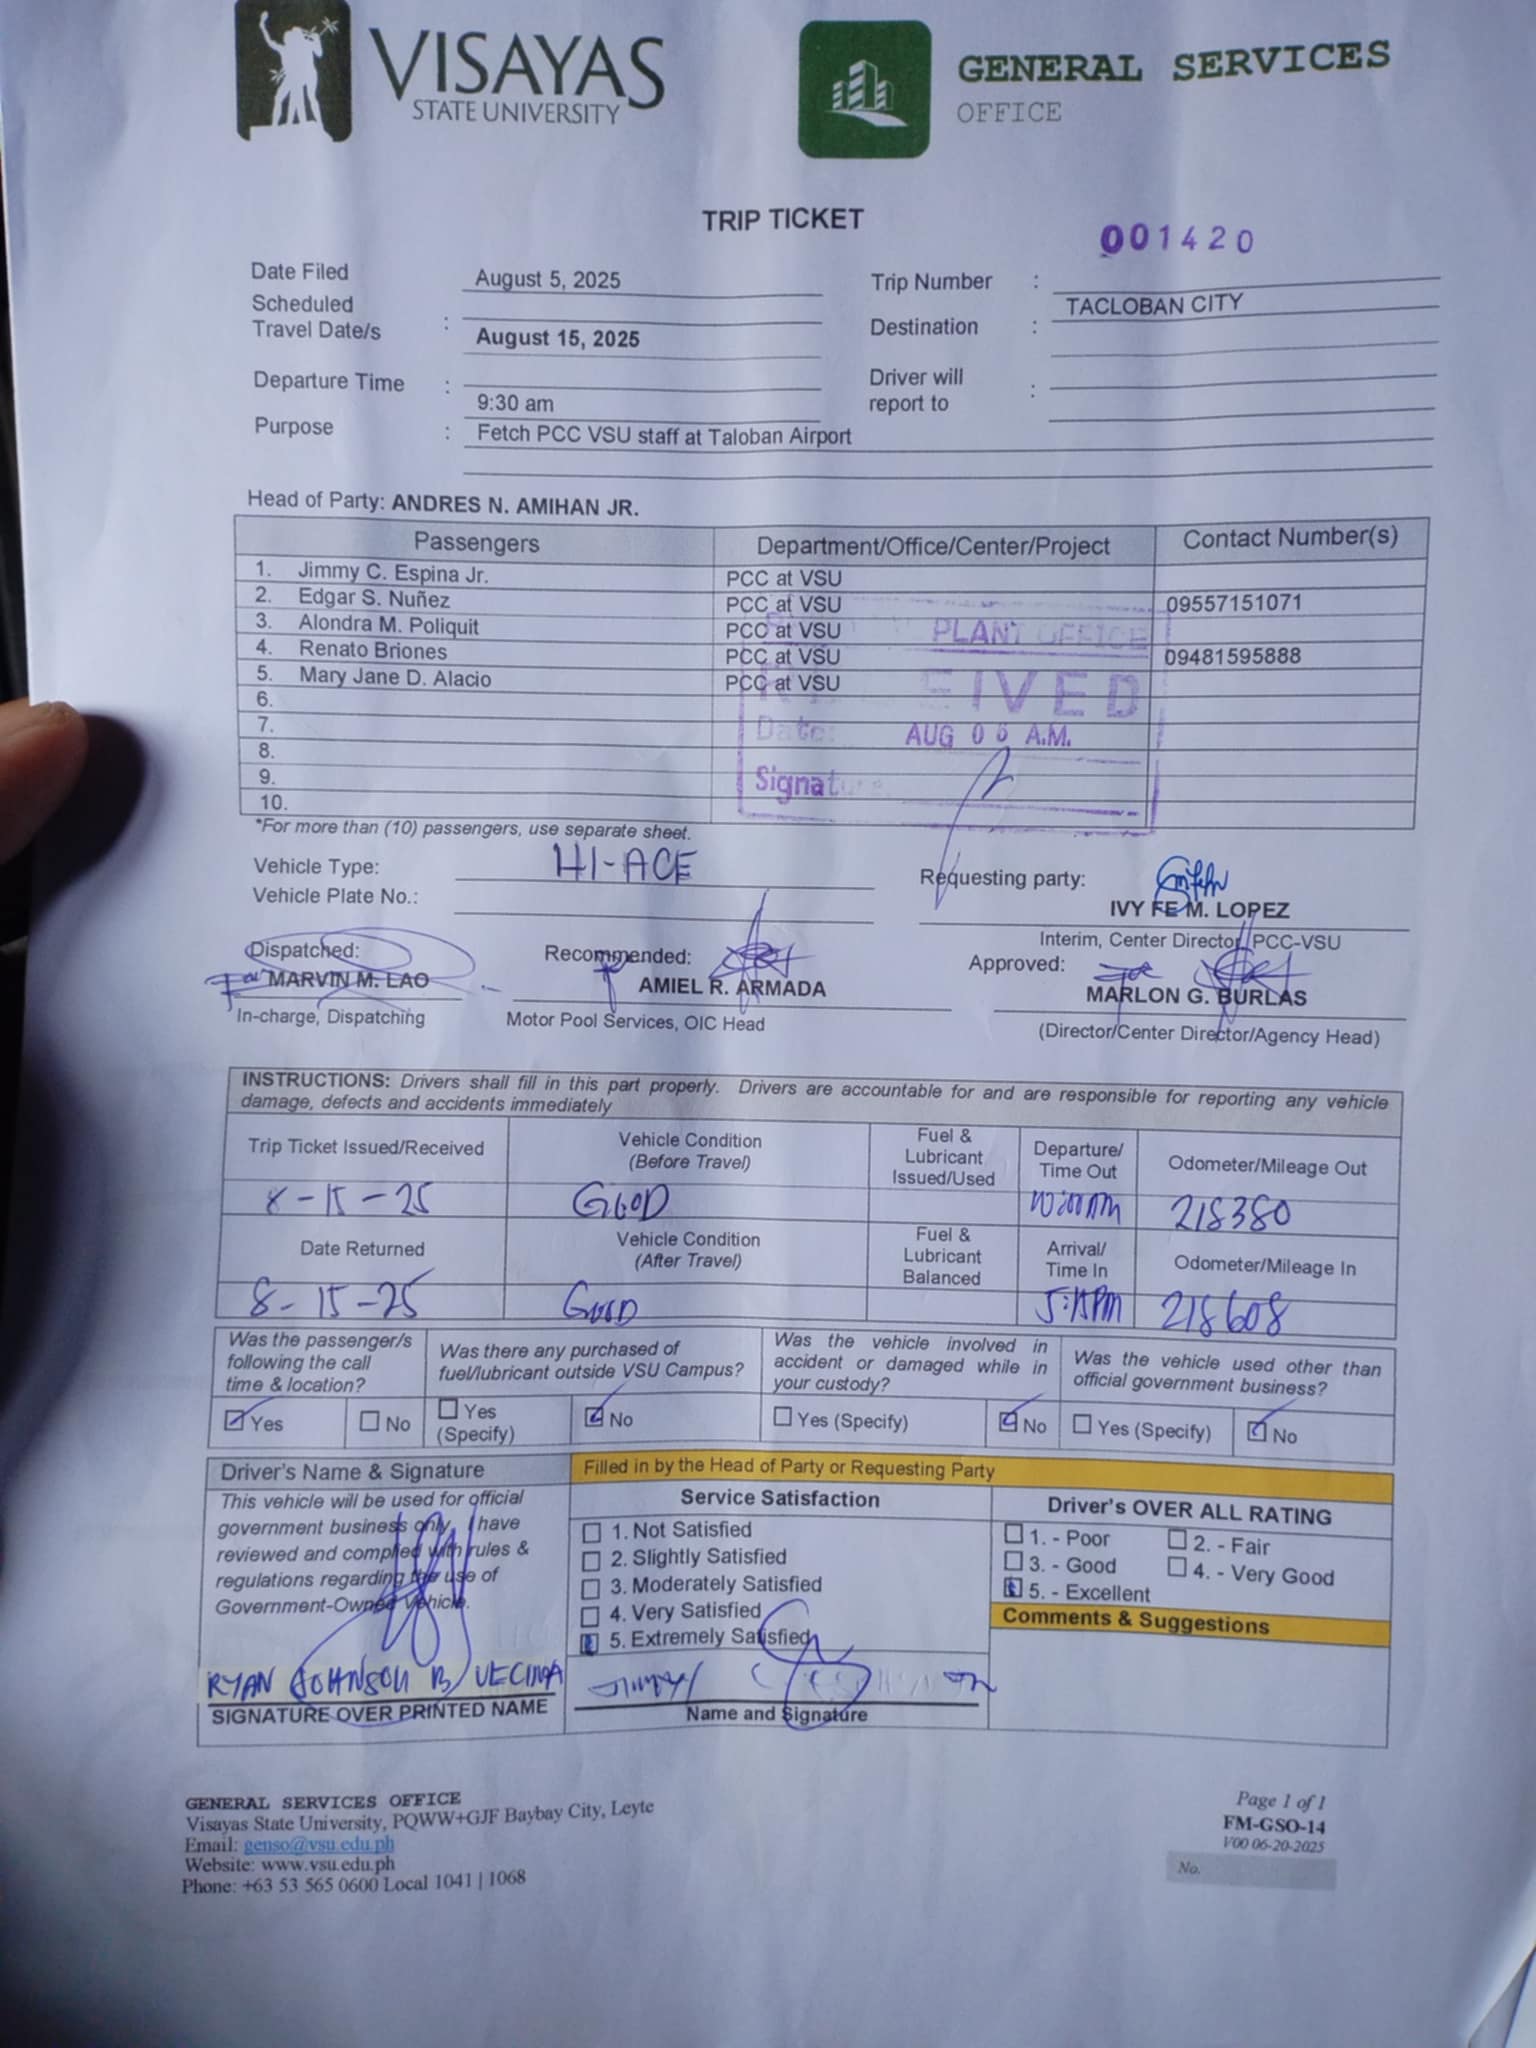 VISAYAS
STATE UNIVERSITY
GENERAL SERVICES
OFFICE
TRIP TICKET
001420
Date Filed August 5, 2025 Trip Number :
Scheduled Travel Date/s : August 15, 2025 Destination : TACLOBAN CITY
Departure Time : 9:30 am Driver will report to :
Purpose : Fetch PCC VSU staff at Taloban Airport
Head of Party: ANDRES N. AMIHAN JR.
Passengers Department/Office/Center/Project Contact Number(s)
1. Jimmy C. Espina Jr. PCC at VSU
2. Edgar S. Nuñez PCC at VSU 09557151071
3. Alondra M. Poliquit PCC at VSU
4. Renato Briones PCC at VSU 09481595888
5. Mary Jane D. Alacio PCC at VSU
6.
7.
8.
9.
10.
PLANT OFFICE
RECEIVED
Date: AUG 06 A.M.
Signature
*For more than (10) passengers, use separate sheet.
Vehicle Type: HI-ACE
Vehicle Plate No.:
Requesting party:
IVY FE M. LOPEZ
Interim, Center Director, PCC-VSU
Dispatched: Recommended: Approved:
For MARVIN M. LAO AMIEL R. ARMADA For MARLON G. BURLAS
In-charge, Dispatching Motor Pool Services, OIC Head (Director/Center Director/Agency Head)
INSTRUCTIONS: Drivers shall fill in this part properly. Drivers are accountable for and are responsible for reporting any vehicle
damage, defects and accidents immediately
Trip Ticket Issued/Received Vehicle Condition (Before Travel) Fuel & Lubricant Issued/Used Departure/ Time Out Odometer/Mileage Out
8-15-25 GOOD 10:00AM 218380
Date Returned Vehicle Condition (After Travel) Fuel & Lubricant Balanced Arrival/ Time In Odometer/Mileage In
8-15-25 GOOD 218608
Was the passenger/s following the call time & location? Was there any purchased of fuel/lubricant outside VSU Campus? Was the vehicle involved in accident or damaged while in your custody? Was the vehicle used other than official government business?
Yes No Yes (Specify) No Yes (Specify) No Yes (Specify) No
Driver's Name & Signature
This vehicle will be used for official
government business only. I have
reviewed and complied with rules &
regulations regarding the use of
Government-Owned Vehicle.
RYAN JOHNSON B VECINA
SIGNATURE OVER PRINTED NAME
Filled in by the Head of Party or Requesting Party
Service Satisfaction
1. Not Satisfied
2. Slightly Satisfied
3. Moderately Satisfied
4. Very Satisfied
5. Extremely Satisfied
Name and Signature
Driver's OVER ALL RATING
1. - Poor 2. - Fair
3. - Good 4. - Very Good
5. - Excellent
Comments & Suggestions
GENERAL SERVICES OFFICE
Visayas State University, PQWW+GJF Baybay City, Leyte
Email: genso@vsu.edu.ph
Website: www.vsu.edu.ph
Phone: +63 53 565 0600 Local 1041 | 1068
Page 1 of 1
FM-GSO-14
V00 06-20-2025
No.